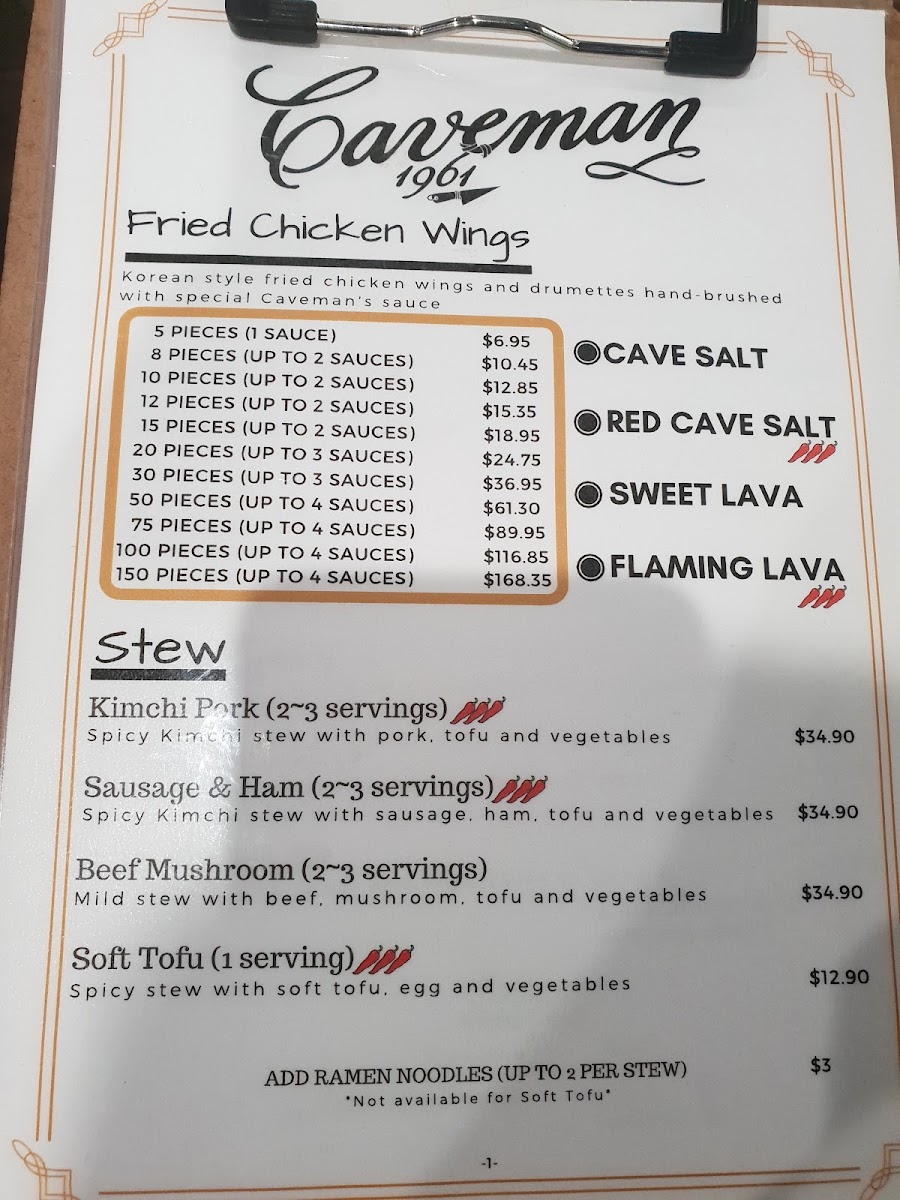 Caveman
1961
Fried Chicken Wings
Korean style fried chicken wings and drumettes hand-brushed
with special Caveman's sauce
5 PIECES (1 SAUCE) $6.95
8 PIECES (UP TO 2 SAUCES) $10.45
10 PIECES (UP TO 2 SAUCES) $12.85
12 PIECES (UP TO 2 SAUCES) $15.35
15 PIECES (UP TO 2 SAUCES) $18.95
20 PIECES (UP TO 3 SAUCES) $24.75
30 PIECES (UP TO 3 SAUCES) $36.95
50 PIECES (UP TO 4 SAUCES) $61.30
75 PIECES (UP TO 4 SAUCES) $89.95
100 PIECES (UP TO 4 SAUCES) $116.85
150 PIECES (UP TO 4 SAUCES) $168.35
CAVE SALT
RED CAVE SALT
SWEET LAVA
FLAMING LAVA
Stew
Kimchi Pork (2~3 servings)
Spicy Kimchi stew with pork, tofu and vegetables $34.90
Sausage & Ham (2~3 servings)
Spicy Kimchi stew with sausage, ham, tofu and vegetables $34.90
Beef Mushroom (2~3 servings)
Mild stew with beef, mushroom, tofu and vegetables $34.90
Soft Tofu (1 serving)
Spicy stew with soft tofu, egg and vegetables $12.90
ADD RAMEN NOODLES (UP TO 2 PER STEW) $3
*Not available for Soft Tofu*
-1-